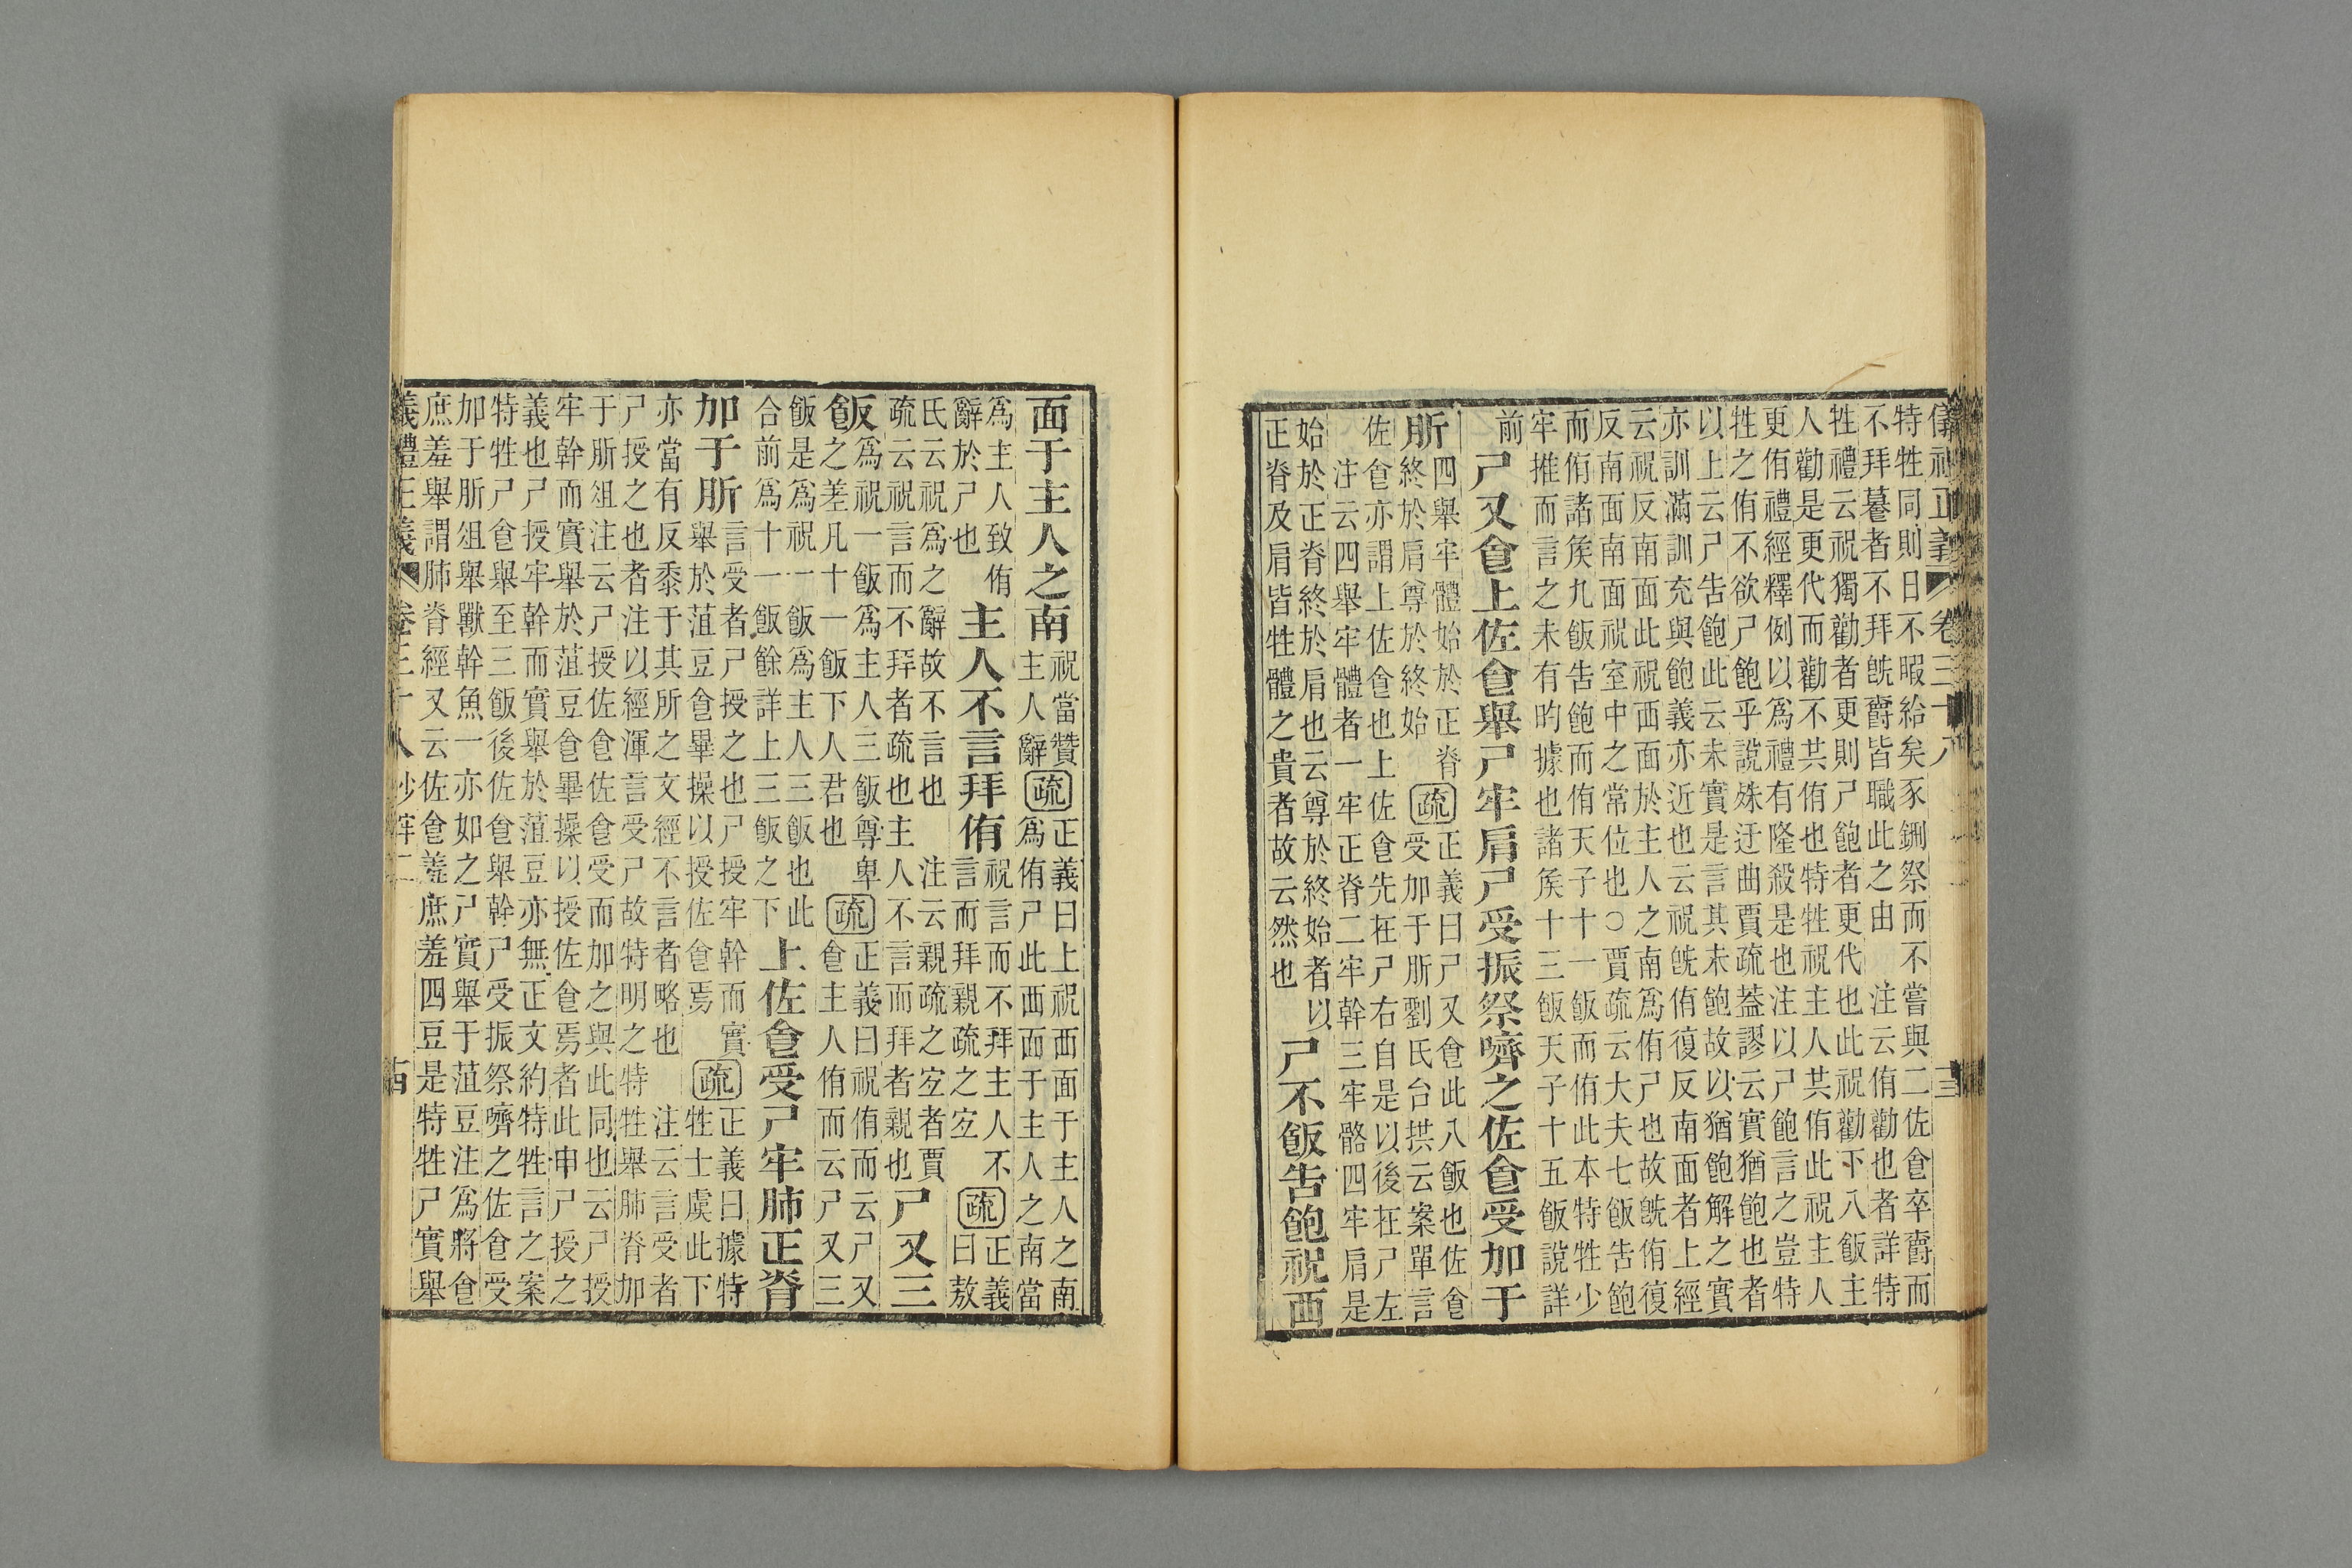 特牲同則日不暇給矣豕鉶祭而不嘗與二佐㑹卒𧣴而
不拜㬥者不拜旣𧣴皆職此之由　注云侑勸也者詳特
牲禮云祝獨勸者更則尸飽者更代也此祝勸下八飯主
人勸是更代而勸不共侑也特牲祝主人共侑此祝主人
更侑禮經釋例以爲禮有隆殺是也注以尸飽言之豈特
牲之侑不欲尸飽乎說殊迂曲賈疏蓋謬云實猶飽也者
以上云尸告飽此云未實是言其未飽故以猶飽解之實
亦訓滿訓充與飽義亦近也云祝旣侑復反南面者上經
云祝反南面此祝西面於主人之南爲侑尸也故旣侑復
反南面南面祝室中之常位也○賈疏云大夫七飯告飽
而侑諸矦九飯告飽而侑天子十一飯而侑此本特牲少
牢推而言之未有昀據也諸矦十三飯天子十五飯說詳
前
尸又食上佐食舉尸牢肩尸受振祭嚌之佐食受加于
肵
四舉牢體始於正脊
終於肩尊於終始
疏
正義曰尸又食此八飯也佐食
受加于肵劉氏台拱云案單言
佐食亦謂上佐食也上佐食先在尸右自是以後在尸左
注云四舉牢體者一牢正脊二牢幹三牢骼四牢肩是
始於正脊終於肩也云尊於終始者以
正脊及肩皆牲體之貴者故云然也
尸不飯告飽祝西
面于主人之南
祝當贊
主人辭
疏
正義曰上祝西面于主人之南
爲侑尸此西面于主人之南當
爲主人致侑
辭於尸也
主人不言拜侑
祝言而不拜主人不
言而拜親疏之宐
疏
正義
曰敖
氏云祝爲之辭故不言也　注云親疏之宐者賈
疏云祝言而不拜者疏也主人不言而拜者親也
尸又三
飯
爲祝一飯爲主人三飯尊卑
之差凡十一飯下人君也
疏
正義曰祝侑而云尸又
食主人侑而云尸又三
飯是爲祝一飯爲主人三飯也此
合前爲十一飯餘詳上三飯之下
上佐食受尸牢肺正脊
加于肵
言受者尸授之也尸授牢幹而實
舉於菹豆食畢操以授佐食焉
疏
正義曰據特
牲士虞此下
亦當有反黍于其所之文經不言者略也　注云言受者
尸授之也者注以經渾言受尸故特明之特牲舉肺脊加
于肵俎注云尸授佐食佐食受而加之與此同也云尸授
牢幹而實舉於菹豆食畢操以授佐食焉者此申尸授之
義也尸授牢幹而實舉於菹豆亦無正文約特牲言之案
特牲尸食舉至三飯後佐食舉幹尸受振祭嚌之佐食受
加于肵俎舉獸幹魚一亦如之尸實舉于菹豆注爲將食
庶羞舉謂肺脊經又云佐食羞庶羞四豆是特牲尸實舉